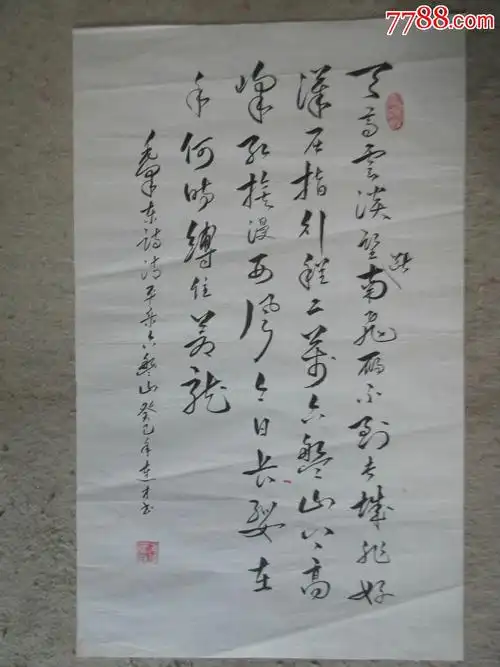 7788.com
天高雲淡望斷南飛雁不到长城非好
漢屈指行程二萬六盤山上高
峰红旗漫西風今日长缨在
手何時縛住蒼龍
毛澤東詩清平乐六盤山癸巳年達才书